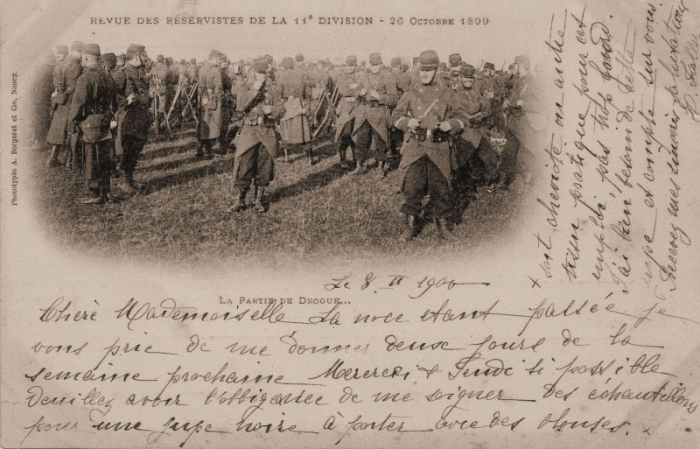 REVUE DES RÉSERVISTES DE LA 11e DIVISION - 26 OCTOBRE 1899
Phototypie A. Bergeret et Cie, Nancy.
LA PARTIE DE DROGUE...
Le 8. II 1900
Chère Mademoiselle La noce étant passée je
vous prie de me donner deux jours de la
semaine prochaine Mercredi & Jeudi si possible
Veuillez avoir l'obligeance de me
des échantillons
pour une jupe noire à porter avec des blouses. x
x soit cheviote ou autre
tissu pratique pour cet
emploi pas trop lourd.
J'ai bien besoin de cette
jupe et compte sur vous.
Recevez mes salutations